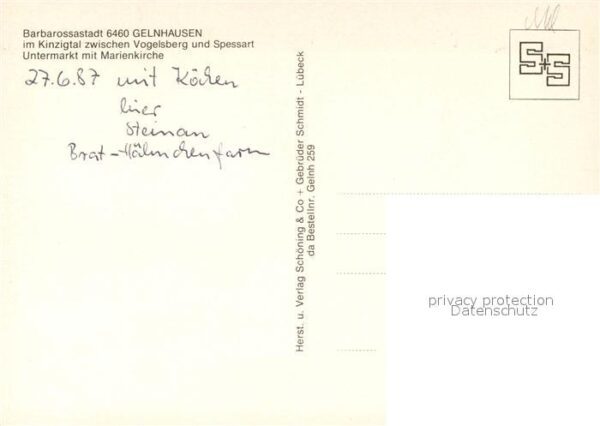 Barbarossastadt 6460 GELNHAUSEN
im Kinzigtal zwischen Vogelsberg und Spessart
Untermarkt mit Marienkirche
27.6.87 mit
hier
Steinau
Brat-Hähnchenfarm
Herst. u. Verlag Schöning & Co + Gebrüder Schmidt - Lübeck
da Bestellnr. Gelnh 259
S+S
privacy protection
Datenschutz